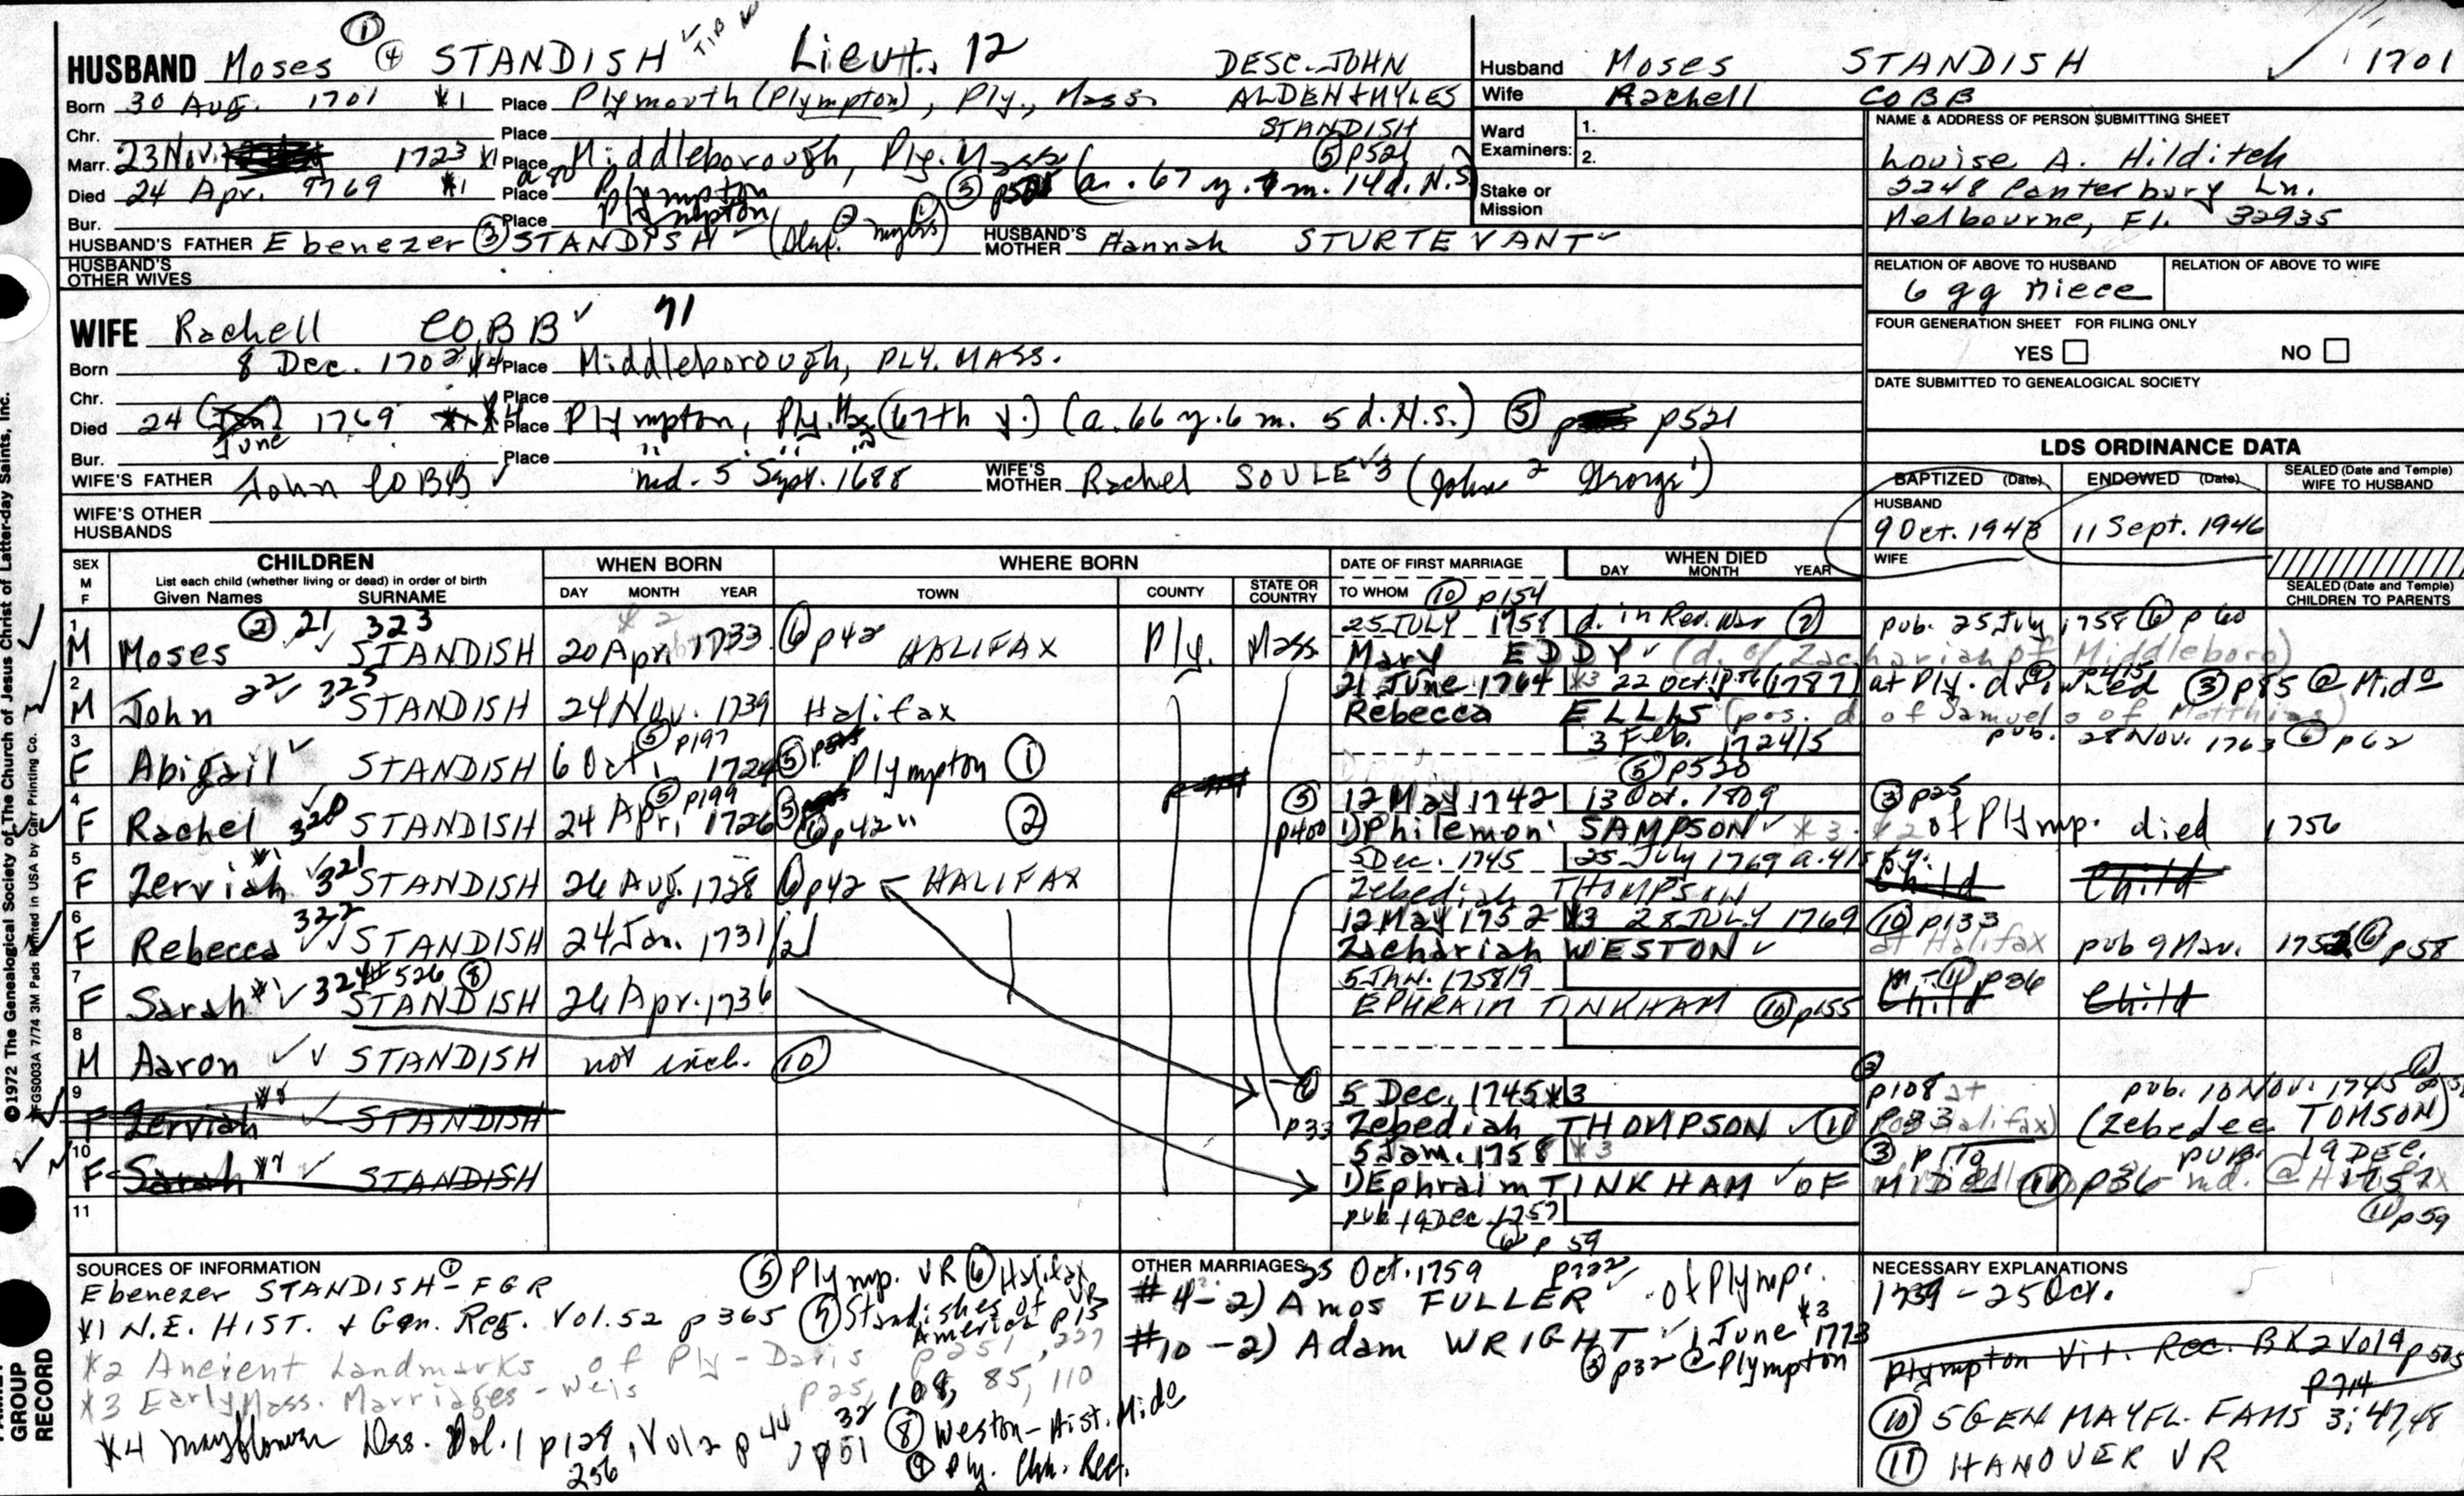 ①
HUSBAND Moses ④ STANDISH ✓ TIB Lieut. 12 DESC. JOHN
Born 30 Aug. 1701 *1 Place Plymouth (Plympton), Ply., Mass. ALDEN & MYLES
Chr. Place STANDISH
Marr. 23 Nov. 1723 *1 Place Middleborough, Ply. Mass ⑤ p521
Died 24 Apr. 1769 *1 Place Plympton ③ (a. 67 y. 7 m. 14 d. N.S.
Bur. Place Plympton
HUSBAND'S FATHER Ebenezer ③ STANDISH HUSBAND'S MOTHER Hannah STURTEVANT ✓
HUSBAND'S OTHER WIVES
Husband Moses STANDISH ✓ 1701
Wife Rachell COBB
Ward Examiners: 1.
2.
Stake or Mission
NAME & ADDRESS OF PERSON SUBMITTING SHEET
Louise A. Hilditch
2248 Canterbury Ln.
Melbourne, Fl. 32935
RELATION OF ABOVE TO HUSBAND RELATION OF ABOVE TO WIFE
6 gg niece
FOUR GENERATION SHEET FOR FILING ONLY
YES NO
DATE SUBMITTED TO GENEALOGICAL SOCIETY
WIFE Rachell COBB ✓ 71
Born 8 Dec. 1702 *4 Place Middleborough, PLY. MASS.
Chr. Place
Died 24 (Jan) June 1769 *4 Place Plympton, Ply. (67th y.) (a. 66 y. 6 m. 5 d. N.S.) ⑤ p521
Bur. Place
WIFE'S FATHER John COBB ✓ md. 5 Sept. 1688 WIFE'S MOTHER Rachel SOULE ✓ 3 (John 2 George 1)
WIFE'S OTHER HUSBANDS
LDS ORDINANCE DATA
BAPTIZED (Date) ENDOWED (Date) SEALED (Date and Temple) WIFE TO HUSBAND
HUSBAND
9 Oct. 1943 11 Sept. 1946
WIFE
SEALED (Date and Temple) CHILDREN TO PARENTS
SEX M F CHILDREN List each child (whether living or dead) in order of birth Given Names SURNAME
WHEN BORN DAY MONTH YEAR
WHERE BORN TOWN COUNTY STATE OR COUNTRY
DATE OF FIRST MARRIAGE TO WHOM
WHEN DIED DAY MONTH YEAR
⑩ p154
1 ② 21 323 *2 25 JULY 1758 d. in Rev. War ⑦ pub. 25 July 1758 ⑥ p 60
M Moses ✓ STANDISH 20 Apr. 1733 ⑥ p42 HALIFAX Ply. Mass Mary EDDY ✓ (d. of Zachariah of Middleboro)
2 22 ✓ 325 21 June 1764 *3 22 Oct. (1787) at Ply. drowned ③ p85 @ Mido
M John STANDISH 24 Nov. 1739 Halifax Rebecca ELLIS (pos. d of Samuel s of Matthias)
3 ⑤ p197 3 Feb. 1724/5 pub. 28 Nov. 1763 ⑥ p62
F Abigail ✓ STANDISH 6 Oct. 1724 ⑤ Plympton ① ⑤ p520
4 ⑤ p199 ⑤ 12 May 1742 13 Oct. 1809 ③ p25
F Rachel 320 STANDISH 24 Apr. 1726 ⑥ p42 " ② p400 1) Philemon SAMPSON ✓ *3 *2 of Plymp. died 1756
5 *1 5 Dec. 1745 25 July 1769 a. 41
F Zerviah ✓ 321 STANDISH 26 Aug. 1728 ⑥ p42 HALIFAX Zebediah THOMPSON Child Child
6 322 12 May 1752 *3 28 JULY 1769 ⑩ p133
F Rebecca ✓✓ STANDISH 24 Jan. 1731/2 Zachariah WESTON ✓ at Halifax pub 9 Mar. 1752 ⑥ p58
7 324 #526 ⑧ 5 JAN. 1758/9 m - ⑪ p36
F Sarah *1 ✓ STANDISH 26 Apr. 1736 EPHRAIM TINKHAM ⑩ p155 Child Child
8
M Aaron ✓ ✓ STANDISH not incl. ⑩
9 5 Dec. 1745 *3 ③ p108 at pub. 10 Nov. 1745
F Zerviah ✓ STANDISH p33 Zebediah THOMPSON ✓ ⑪ p33 Halifax) (Zebedee TOMSON)
10 5 Jan. 1758 *3 ③ p110 pub. 19 DEC.
F Sarah ✓ STANDISH 1) Ephraim TINKHAM ✓ OF Mido ⑪ p36 md. @ 1757
11 pub 19 Dec 1757 ⑪ p59
⑥ p 59
SOURCES OF INFORMATION
Ebenezer STANDISH ① - FGR
*1 N.E. HIST. & Gen. Reg. Vol. 52 p 365
*2 Ancient Landmarks of Ply - Davis p251, 227
*3 Early Mass. Marriages - Weis p25, 108, 85, 110
*4 Mayflower Des. Vol. 1 p128, Vol 2 p 44, p51
256
32
⑤ Plymp. VR ⑥ Halifax VR
⑦ Standishes of America p13
⑧ Weston - Hist. Mido
⑨ Ply. Chh. Rec.
OTHER MARRIAGES 25 Oct. 1759
#4 - 2) Amos FULLER of Plymp.
#10 - 2) Adam WRIGHT ✓ 1 June 1773 *3
③ p32 @ Plympton
NECESSARY EXPLANATIONS
1739 - 25 Oct.
Plympton Vit. Rec. BK 2 Vol 9 p 505
⑩ 5 GEN MAYFL. FAMS 3:47,48
⑪ HANOVER VR
©1972 The Genealogical Society of The Church of Jesus Christ of Latter-day Saints, Inc.
PFGS003A 7/74 3M Pads Printed in USA by Carr Printing Co.
FAMILY GROUP RECORD